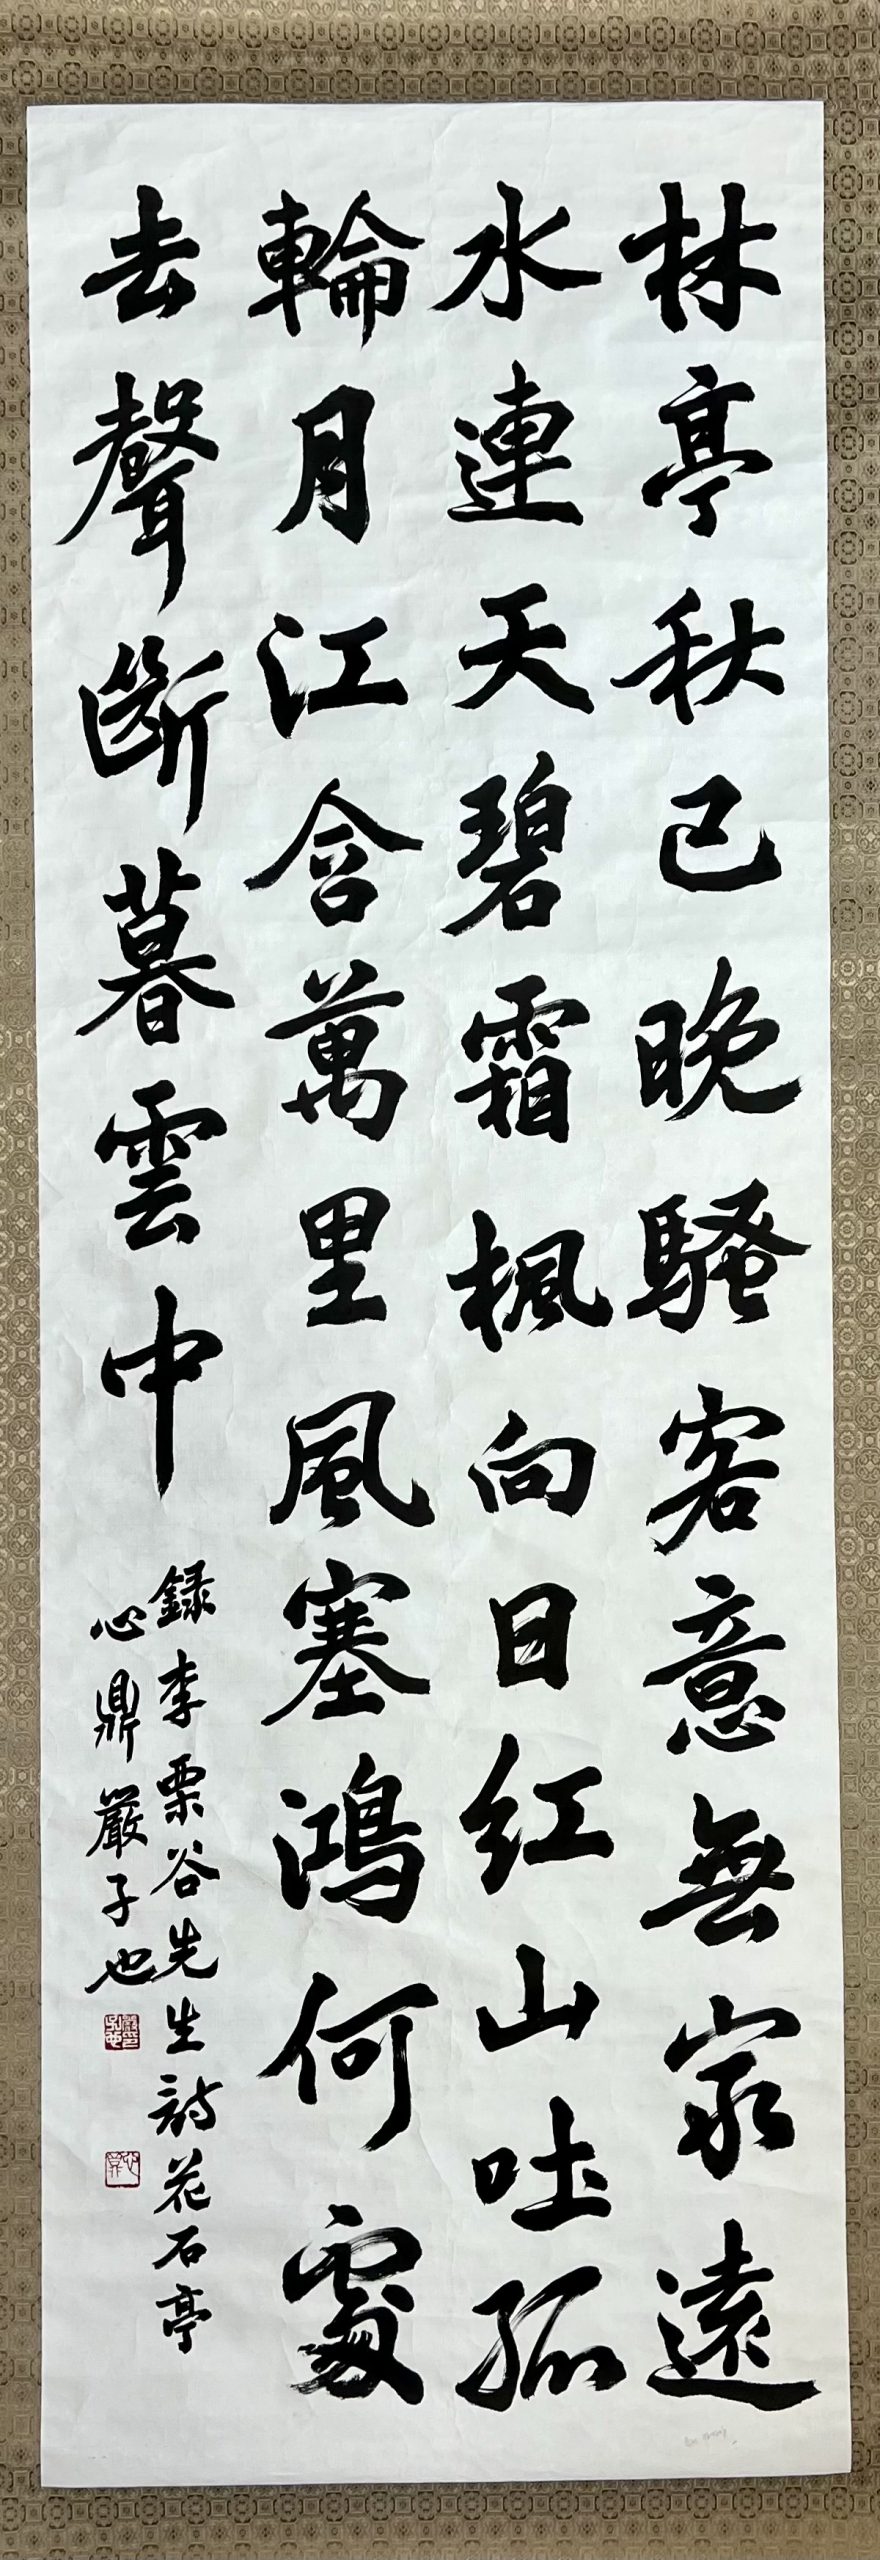 林亭秋已晚騷客意無窮遠
水連天碧霜楓向日紅山吐孤
輪月江含萬里風塞鴻何處
去聲斷暮雲中
錄李栗谷先生詩花石亭
心鼎嚴子也